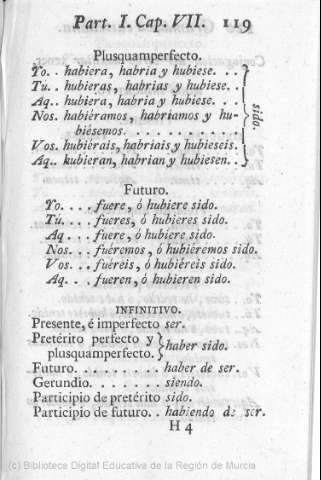 Part. I. Cap. VII. 119
Plusquamperfecto.
Yo.. habiera, habria y hubiese. . .
Tú.. hubieras, habrias y hubiese. .
Aq.. hubiera, habria y hubiese. . .
Nos. habiéramos, habriamos y hu-
biésemos. . . . . . . . . . . .
Vos. hubiérais, habriais y hubieseis.
Aq.. kubieran, habrian y hubiesen. .
sido.
Futuro.
Yo. . . . fuere, ó hubiere sido.
Tú. . . . fueres, ó hubieres sido.
Aq . . . fuere, ó hubiere sido.
Nos. . . fuéremos, ó hubiéremos sido.
Vos. . . fuéreis, ó hubiéreis sido.
Aq. . . . fueren, ó hubieren sido.
INFINITIVO.
Presente, é imperfecto ser.
Pretérito perfecto y
plusquamperfecto. } haber sido.
Futuro. . . . . . . . . haber de ser.
Gerundio. . . . . . . siendo.
Participio de pretérito sido.
Participio de futuro. . habiendo de ser.
H 4
(c) Biblioteca Digital Educativa de la Región de Murcia